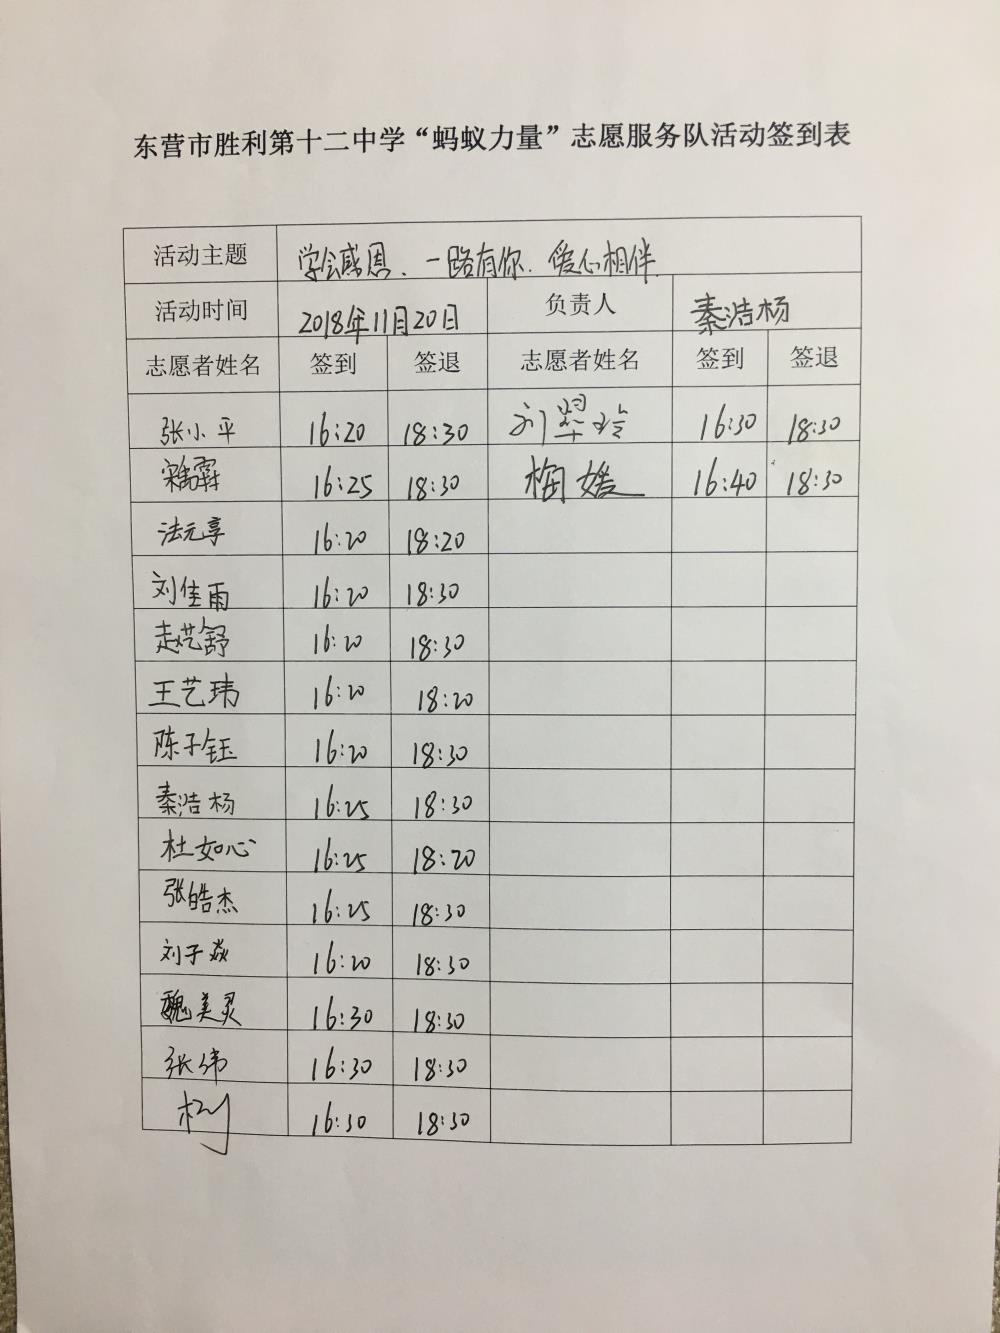 东营市胜利第十二中学“蚂蚁力量”志愿服务队活动签到表
活动主题 学会感恩、一路有你、爱心相伴
活动时间 2018年11月20日 负责人 秦浩杨
志愿者姓名 签到 签退 志愿者姓名 签到 签退
张小平 16:20 18:30 刘翠玲 16:30 18:30
16:25 18:30 梅媛 16:40 18:30
法元享 16:20 18:20
刘佳雨 16:20 18:30
赵艺舒 16:20 18:30
王艺玮 16:20 18:20
陈子钰 16:20 18:30
秦浩杨 16:25 18:30
杜如心 16:25 18:20
张皓杰 16:25 18:30
刘子焱 16:20 18:30
魏美灵 16:30 18:30
张纬 16:30 18:30
16:30 18:30